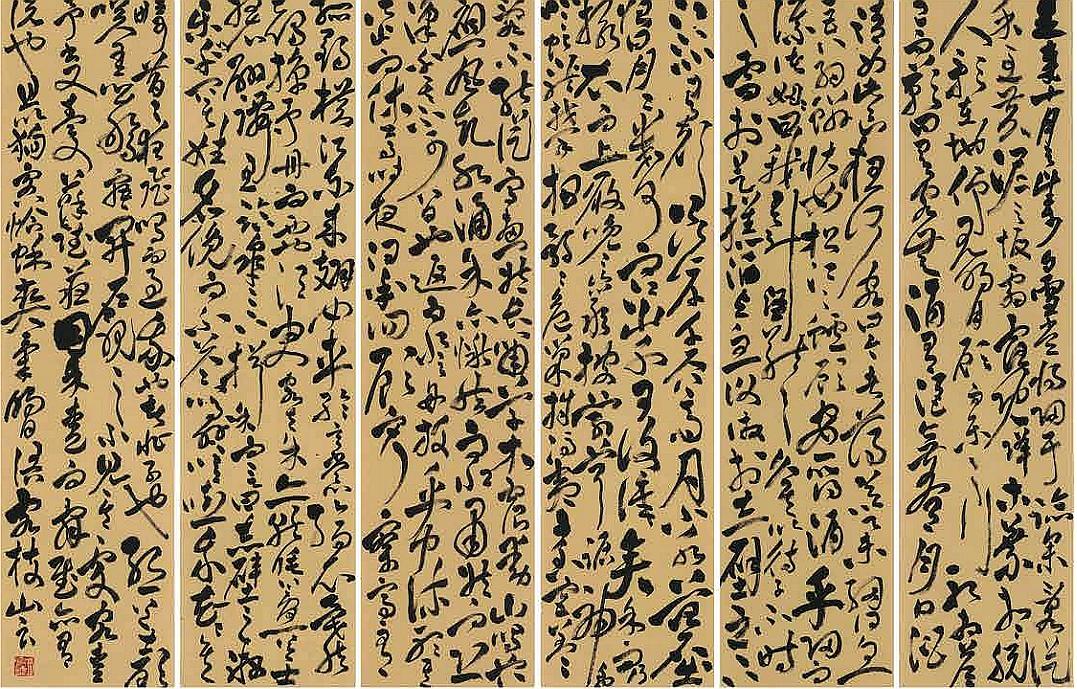 是歲十月之望步自雪堂將歸于臨皋二客從
予過黃泥之坂霜露既降木葉盡脫
人影在地仰見明月顧而樂之行歌相答
已而歎曰有客無酒有酒無肴月白風
清如此良夜何客曰今者薄暮舉網得魚巨
口細鱗狀如松江之鱸顧安所得酒乎歸而
謀諸婦婦曰我有斗酒藏之久矣以待子不時
之需於是攜酒與魚復遊於赤壁之下
江流有聲斷岸千尺山高月小水落石出
曾日月之幾何而江山不可復識矣予乃
攝衣而上履巉巖披蒙茸踞虎豹登
虬龍攀栖鶻之危巢俯馮夷之幽宮蓋二
客不能從焉劃然長嘯草木震動山鳴谷
應風起水涌予亦悄然而悲肅然而恐
凜乎其不可留也返而登舟放乎中流聽其所
止而休焉時夜將半四顧寂寥適有
孤鶴橫江東來翅如車輪玄裳縞衣戛然長鳴
掠予舟而西也須臾客去予亦就睡夢一道士
羽衣翩躚過臨皋之下揖予而言曰赤壁之遊
樂乎問其姓名俛而不答嗚呼噫嘻我知之矣
疇昔之夜飛鳴而過我者非子也耶道士顧
笑予亦驚寤開戶視之不見其處
枝山